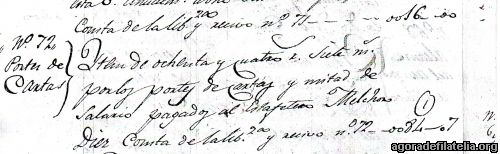 Consta de la lib.ᶻᵃ y recivo nº 71 - - - - 0016 - 00
Nº 72
Portes de
Cartas
Item de ochenta y quatro r.ˢ Siete m.ˢ
por los portes de Cartas y mitad de
Salario pagados al Estafetero Melchor
Diez Consta de la lib.ᶻᵃ y recivo nº 72 - 0084 - 07
(1)
agoradefilatelia.org